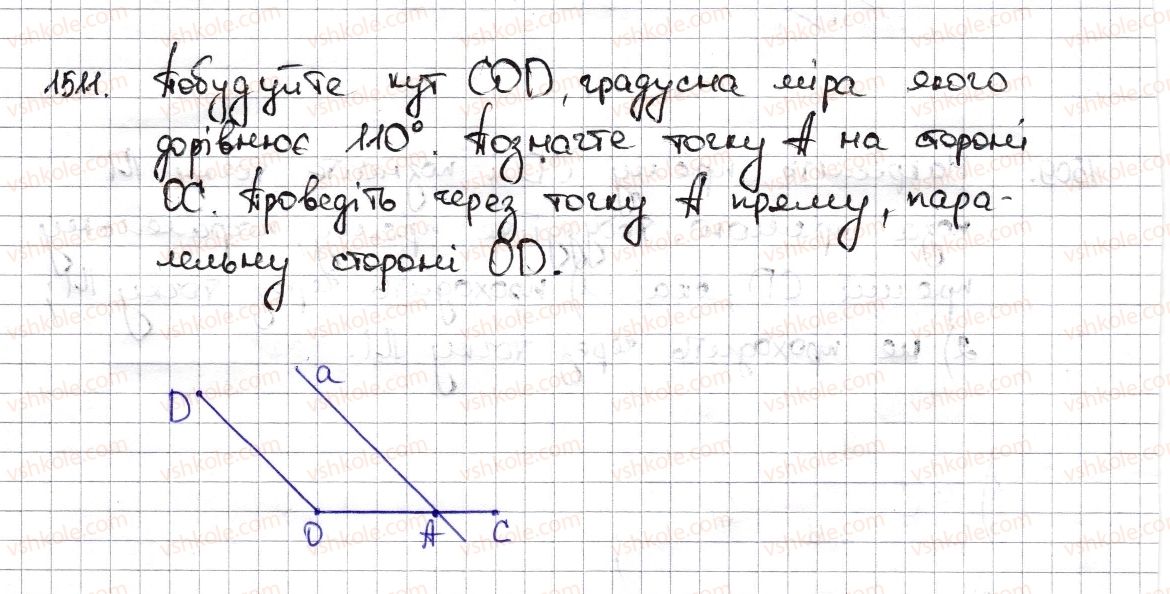 1511. Побудуйте кут COD, градусна міра якого
дорівнює 110°. Позначте точку A на стороні
OC. Проведіть через точку A пряму, пара-
лельну стороні OD.
a
D
O A C
vshkole.com